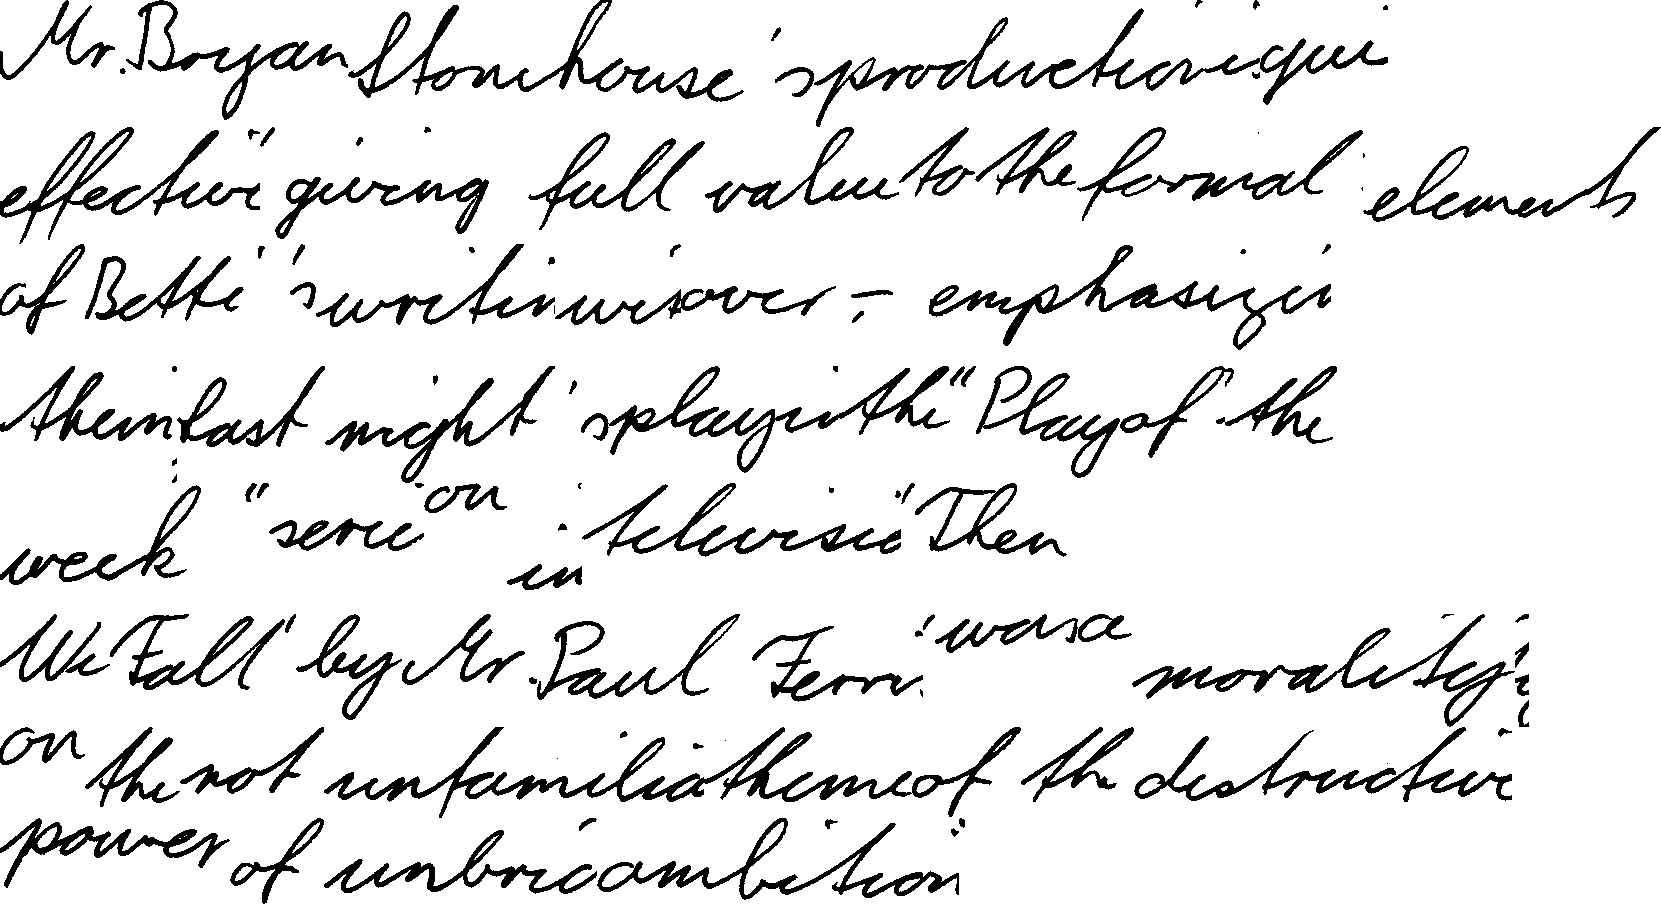 Mr. Bryan Stonehouse's production is qui
effective giving full value to the formal elements
of Betti's writin wi over - emphasizin
them in last night's play in the "Play of the
week" serie on in televisi Then
We Fall by Mr. Paul Ferri was a morality
on the not unfamilia theme of the destructive
power of unbri ambition